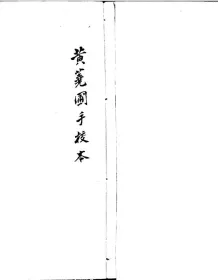 黃蕘圃手校本